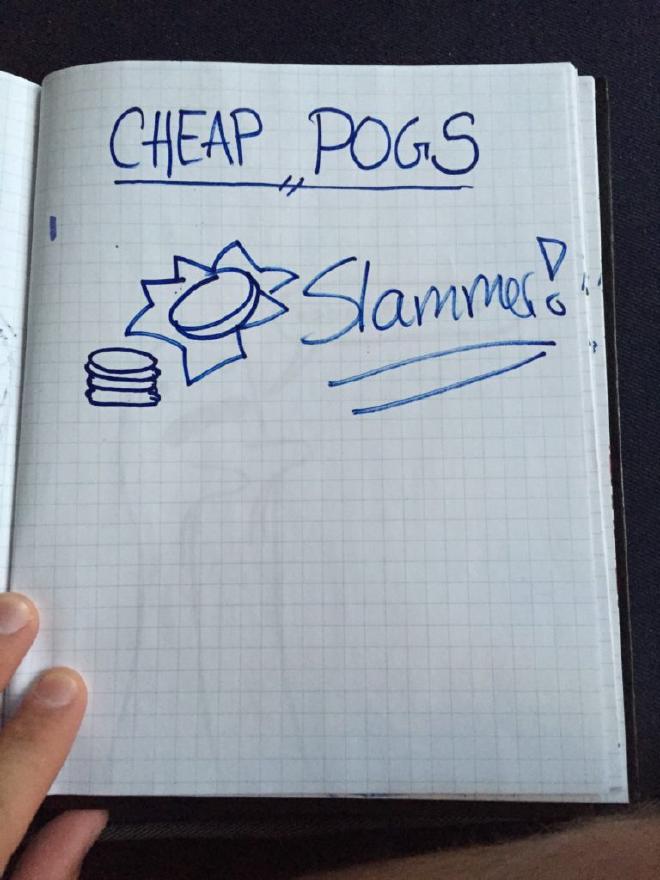 CHEAP POGS
Slammer!